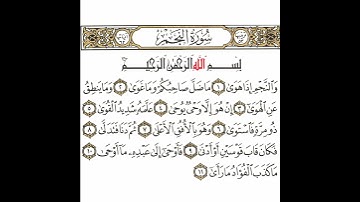 سُورَةُ النَّجْمِ
بِسْمِ اللَّهِ الرَّحْمَٰنِ الرَّحِيمِ
وَالنَّجْمِ إِذَا هَوَىٰ ١ مَا ضَلَّ صَاحِبُكُمْ وَمَا غَوَىٰ ٢ وَمَا يَنطِقُ
عَنِ الْهَوَىٰ ٣ إِنْ هُوَ إِلَّا وَحْيٌ يُوحَىٰ ٤ عَلَّمَهُ شَدِيدُ الْقُوَىٰ ٥
ذُو مِرَّةٍ فَاسْتَوَىٰ ٦ وَهُوَ بِالْأُفُقِ الْأَعْلَىٰ ٧ ثُمَّ دَنَا فَتَدَلَّىٰ ٨
فَكَانَ قَابَ قَوْسَيْنِ أَوْ أَدْنَىٰ ٩ فَأَوْحَىٰ إِلَىٰ عَبْدِهِ مَا أَوْحَىٰ ١٠
مَا كَذَبَ الْفُؤَادُ مَا رَأَىٰ ١١